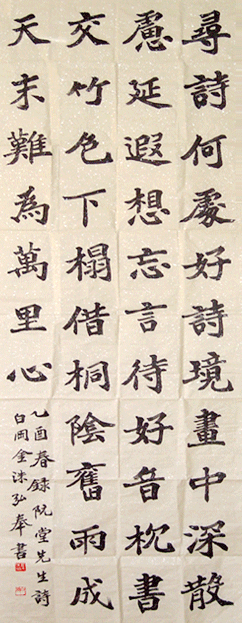 尋詩何處好詩境畫中深散
慮延遐想忘言待好音枕書
交竹色下榻借桐陰舊雨成
天末難為萬里心
乙酉春錄阮堂先生詩
白岡金洙弘奉書